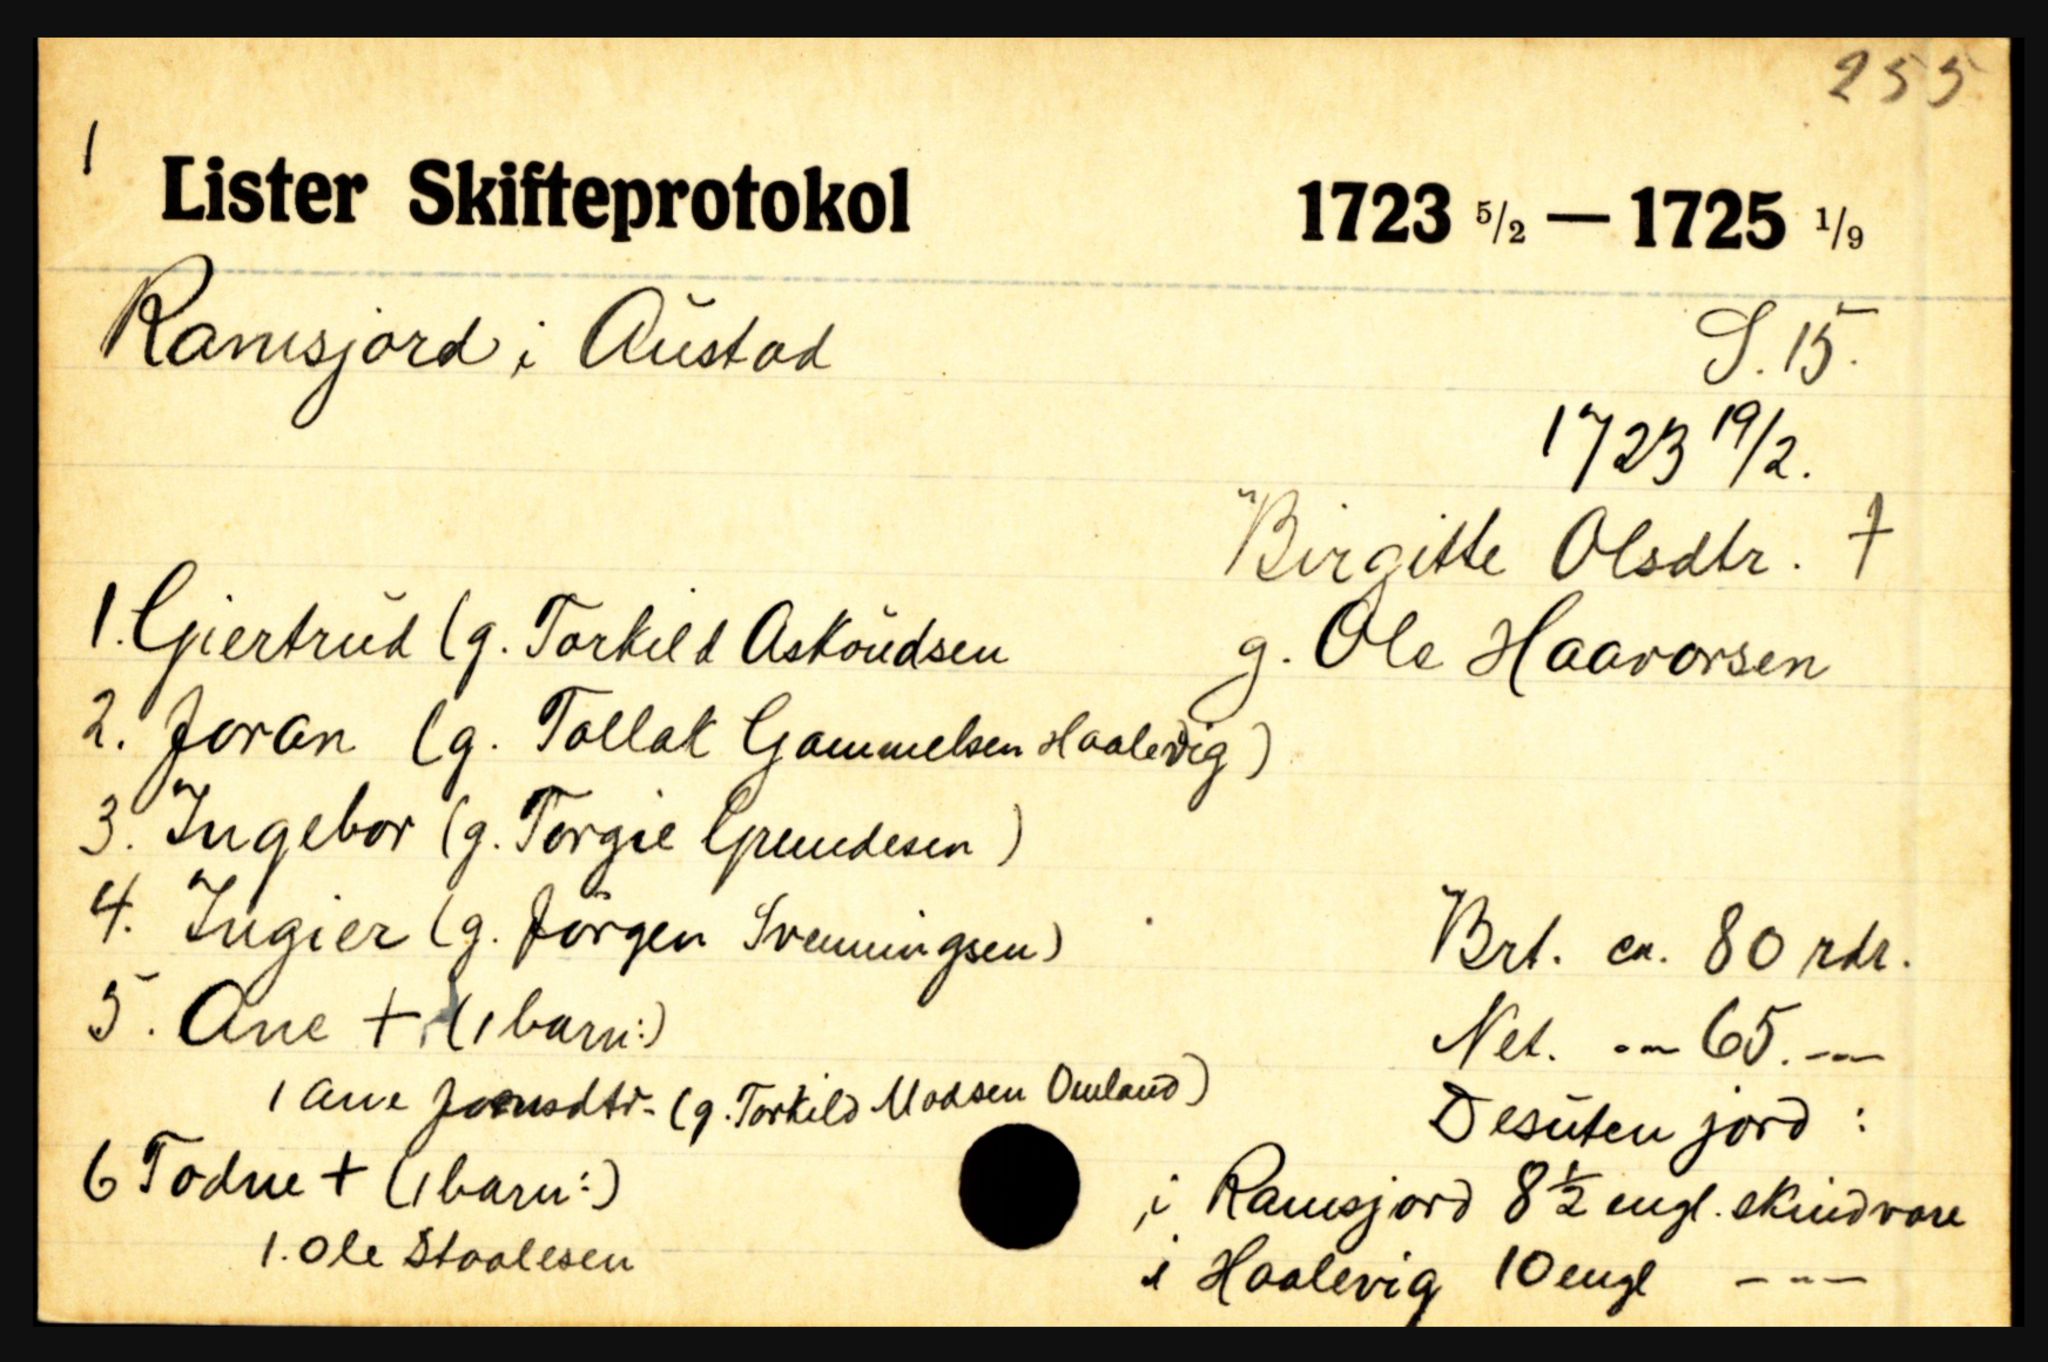 255
1
Lister Skifteprotokol 1723 5/2 — 1725 1/9
Ramsjord i Austad
S. 15.
1723 19/2.
Birgitte Olsdtr. †
g. Ole Haavorsen
1. Giertrud (g. Torkild Askoudsen
2. Joran (g. Tollak Gammelsen Haalevig)
3. Ingebor (g. Torgie Gumdesen)
4. Ingier (g. Jörgen Svenningsen)
5. Ane + (1 barn:)
1 Ane Jonsdtr. (g. Torkild Madsen Omland)
6 Todne + (1 barn:)
1. Ole Staalesen
Brt. ca. 80 rdr.
Net. -"- 65. -"-
Desuten jord :
i Ramsjord 8½ engl. skindvare
i Haalevig 10 engl -"-